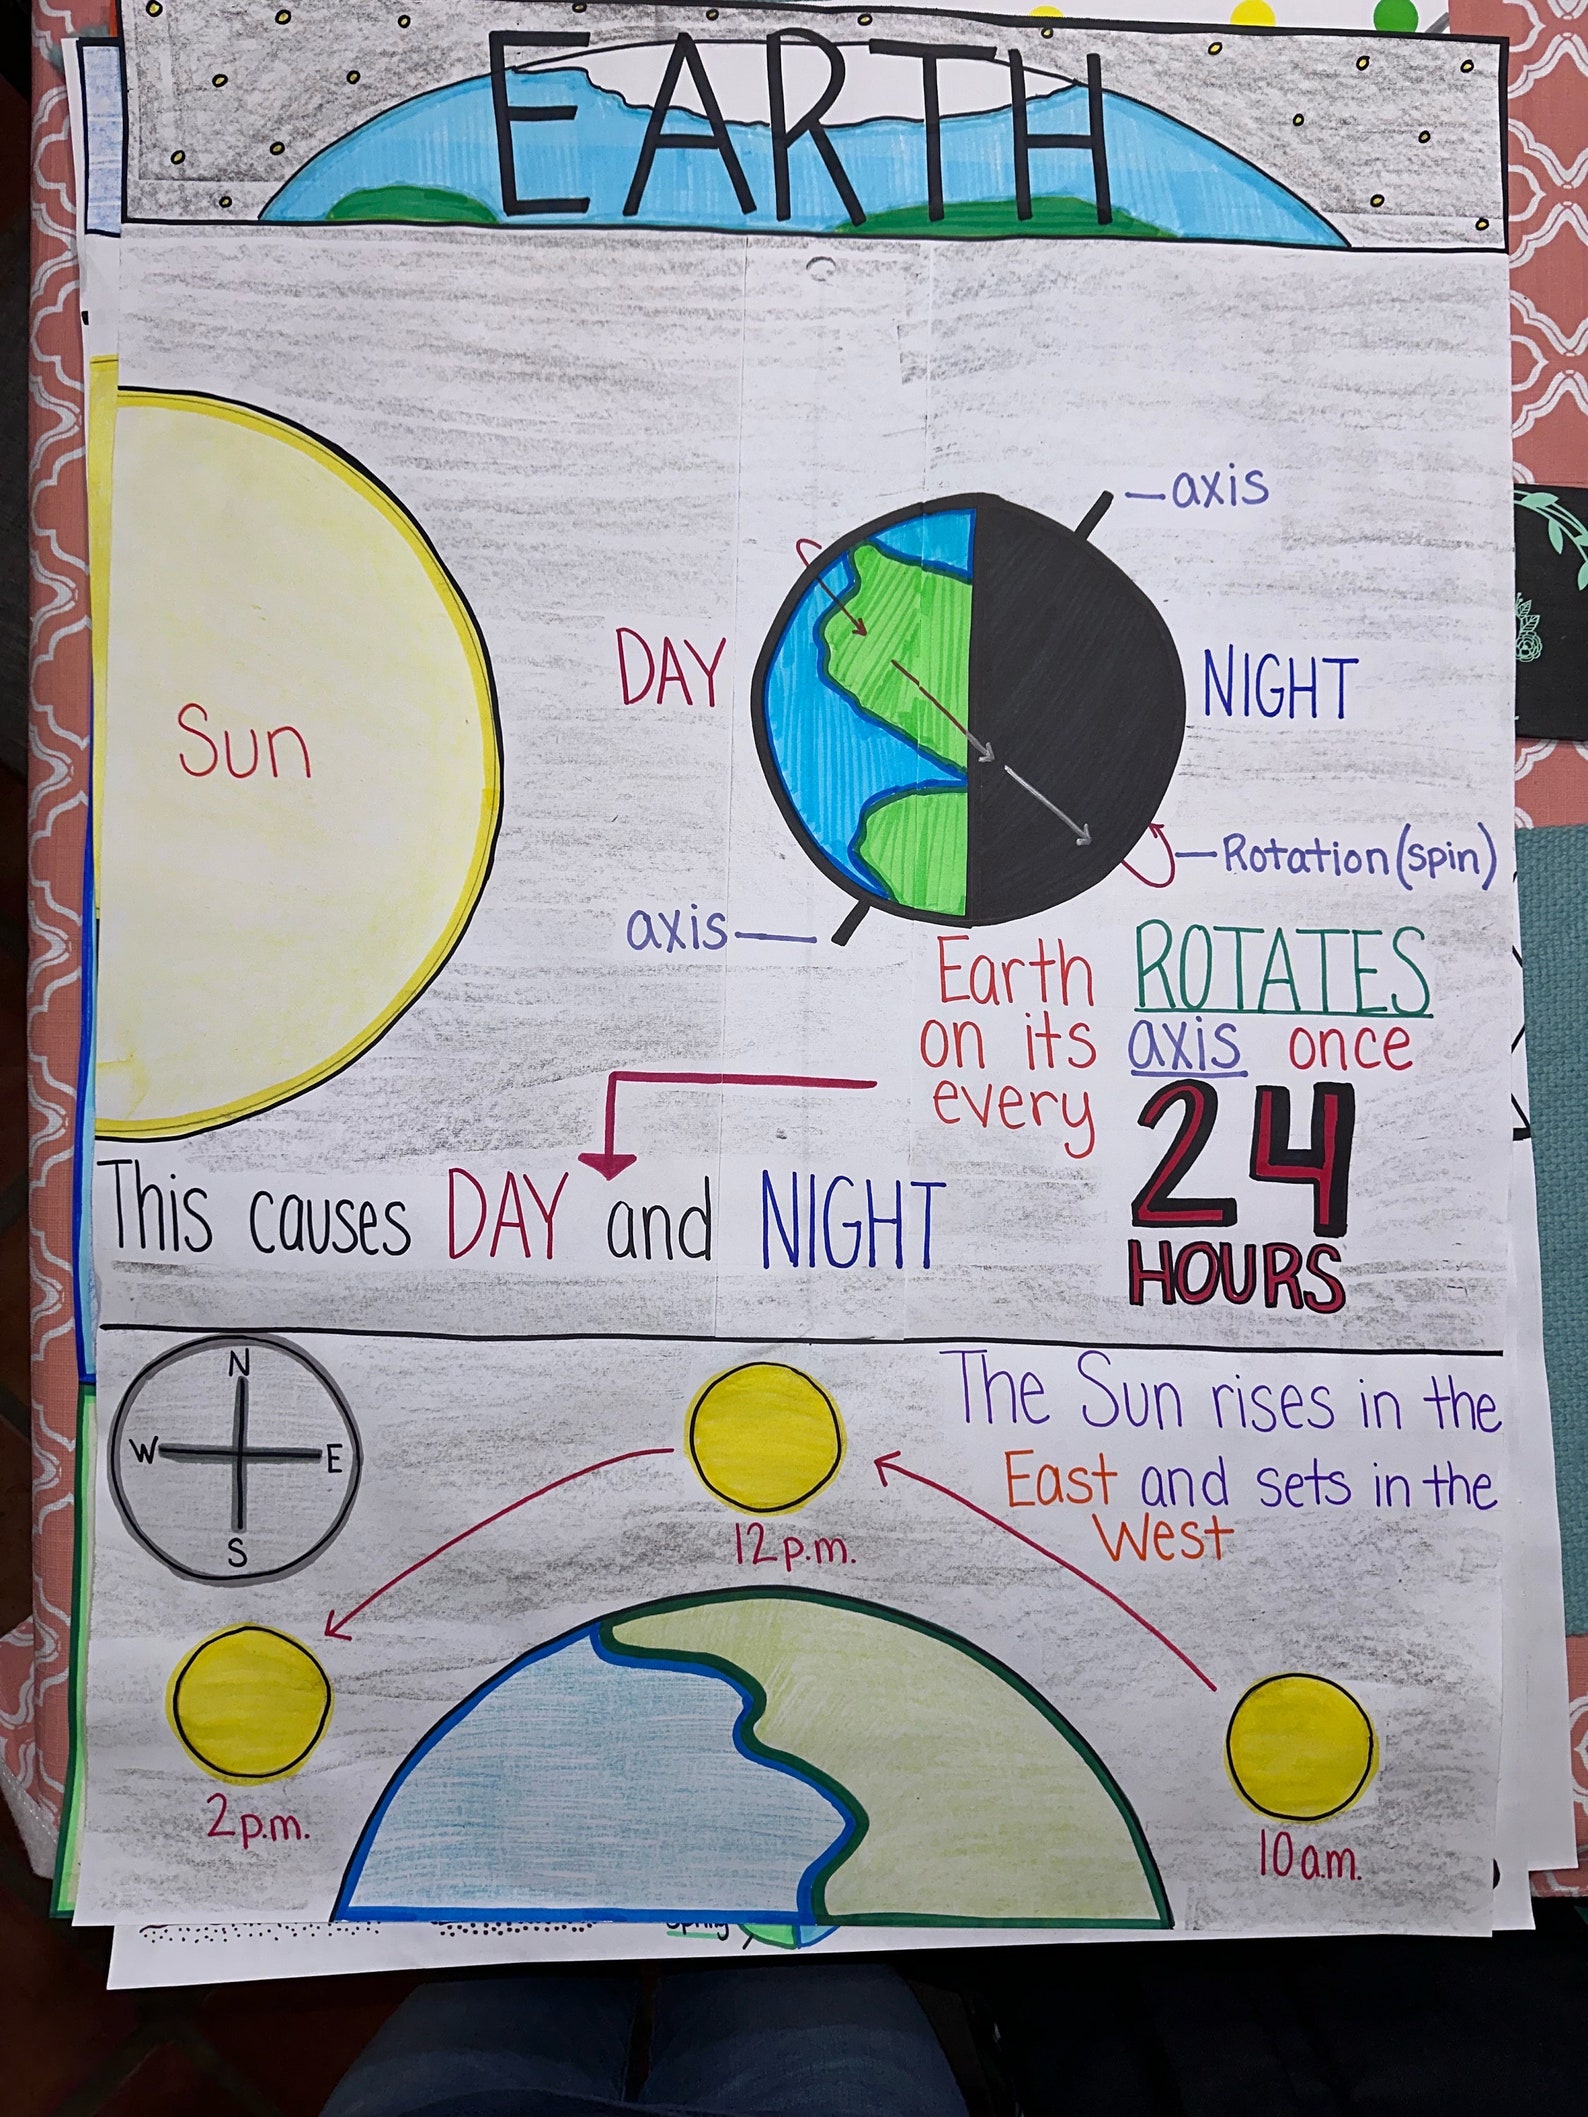 EARTH
axis
DAY
NIGHT
Sun
Rotation (spin)
axis
Earth ROTATES
on its axis once
every 24
HOURS
This causes DAY and NIGHT
N
W E
S
The Sun rises in the
East and sets in the
West
12p.m.
2p.m.
10a.m.
Spring